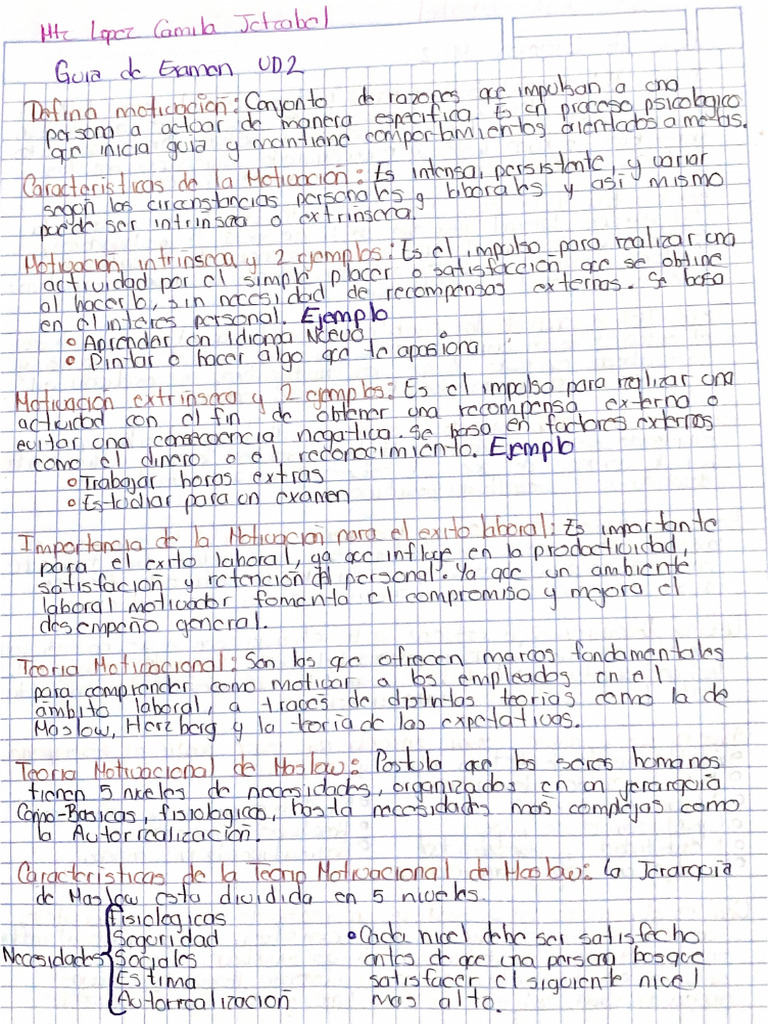 Mtz Lopez Camila Jetzabel
Guia de Examen UD2
Defina motivación: Conjunto de razones que impulsan a una
persona a actuar de manera especifica. Es un proceso psicologico
que inicia guia y mantiene comportamientos orientados a metas.
Caracteristicas de la Motivación: Es intensa, persistente, y variar
según las circunstancias personales y laborales y asi mismo
puede ser intrinseca o extrinseca.
Motivacion intrinseca y 2 ejemplos: Es el impulso para realizar una
actividad por el simple placer o satisfacción que se obtiene
al hacerlo, sin necesidad de recompensas externas. Se basa
en el interes personal. Ejemplo
Aprender un Idioma Nuevo
Pintar o hacer algo que te apasiona
Motivación extrinseca y 2 ejemplos: Es el impulso para realizar una
actividad con el fin de obtener una recompensa externa o
evitar una consecuencia negativa. Se basa en factores externos
como el dinero o el reconocimiento. Ejemplo
Trabajar horas extras
Estudiar para un examen
Importancia de la Motivacion para el exito laboral: Es importante
para el exito laboral, ya que influye en la productividad,
satisfación y retención del personal. Ya que un ambiente
laboral motivador fomenta el compromiso y mejora el
desempeño general.
Teoria Motivacional: Son las que ofrecen marcos fundamentales
para comprender como motivar a los empleados en el
ámbito laboral, a traves de distintas teorias como la de
Maslow, Herzberg y la teoria de las expetativas.
Teoria Motivacional de Maslow: Postula que los seres humanos
tienen 5 niveles de necesidades, organizados en un jerarquia
Como-Basicas, fisiologicas, hasta necesidades mas complejas como
la Autorrealización.
Caracteristicas de la Teoria Motivacional de Maslow: La Jerarquia
de Maslow esta dividida en 5 niveles.
Necesidades
Fisiologicas
Seguridad
Sociales
Estima
Autorrealización
Cada nivel debe ser satisfecho
antes de que una persona busque
satisfacer el siguiente nivel
mas alto.